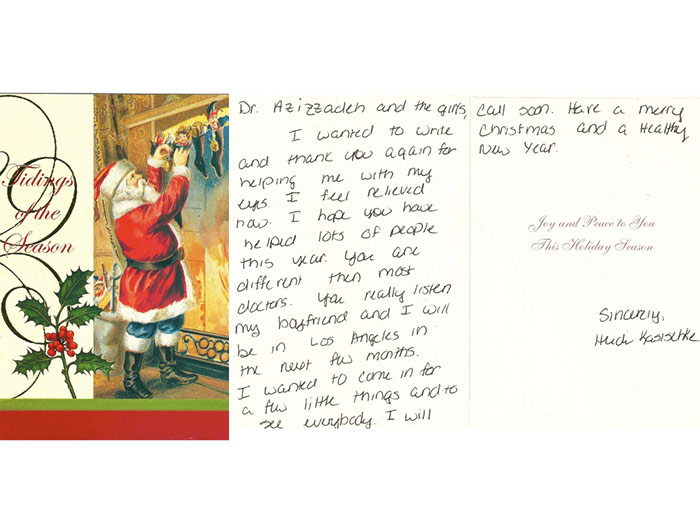 Tidings
of the
Season
Dr. Azizzadeh and the girls,
I wanted to write
and thank you again for
helping me with my
eyes. I feel relieved
now. I hope you have
helped lots of people
this year. You are
different then most
doctors. You really listen
my boyfriend and I will
be in Los Angles in
the next few months.
I wanted to come in for
a few little things and to
see everybody. I will
call soon. Have a merry
Christmas and a Healthy
New Year.
Joy and Peace to You
This Holiday Season
Sincerly,
Heidi